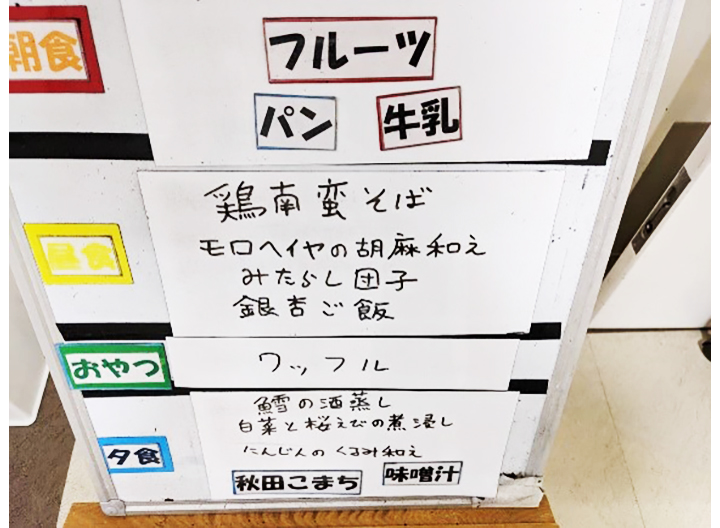 朝食
フルーツ
パン 牛乳
昼食
鶏南蛮そば
モロヘイヤの胡麻和え
みたらし団子
銀杏ご飯
おやつ
ワッフル
夕食
鱈の酒蒸し
白菜と桜えびの煮浸し
にんじんのくるみ和え
秋田こまち 味噌汁